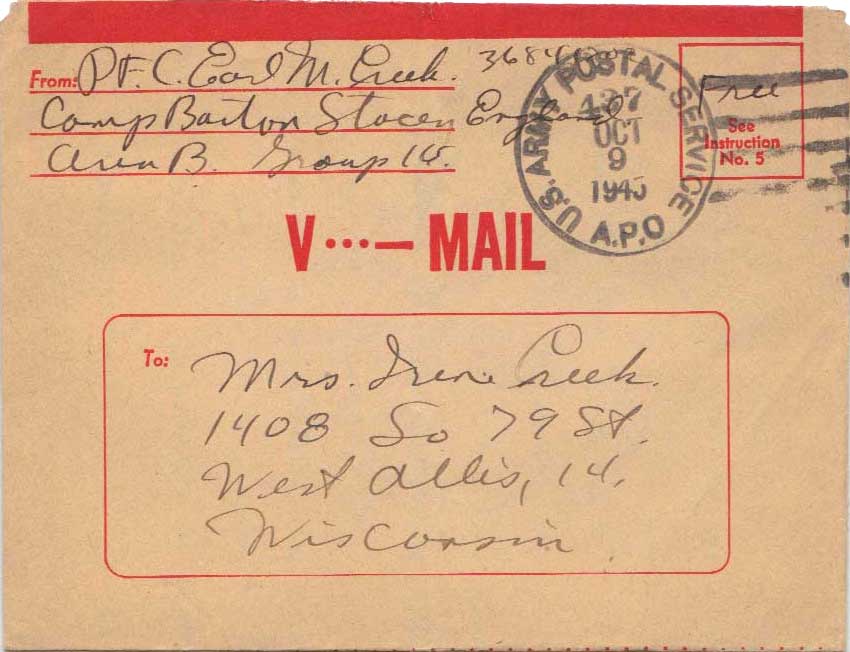 From: P.F.C. Earl M. Creek.
Camp Barton Stacey England
Area B. Group 16.
U.S. ARMY POSTAL SERVICE
437
OCT
9
1945
A.P.O
Free
See
Instruction
No. 5
V ···— MAIL
To:
Mrs. Irene Creek.
1408 So 79 St.
West Allis, 14,
Wisconsin